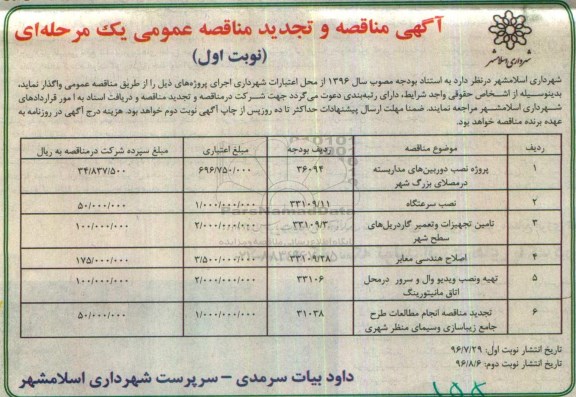 آگهی مناقصه و تجدید مناقصه عمومی یک مرحله‌ای
(نوبت اول)
شهرداری اسلامشهر
شهرداری اسلامشهر درنظر دارد به استناد بودجه مصوب سال ۱۳۹۶ از محل اعتبارات شهرداری اجرای پروژه‌های ذیل را از طریق مناقصه عمومی واگذار نماید،
بدینوسیله از اشخاص حقوقی واجد شرایط، دارای رتبه‌بندی دعوت می‌گردد جهت شرکت درمناقصه و تجدید مناقصه و دریافت اسناد به امور قراردادهای
شهرداری اسلامشهر مراجعه نمایند. ضمنا مهلت ارسال پیشنهادات حداکثر تا ده روزپس از چاپ آگهی نوبت دوم خواهد بود. هزینه درج آگهی در روزنامه به
عهده برنده مناقصه خواهد بود.
ردیف موضوع مناقصه ردیف بودجه مبلغ اعتباری مبلغ سپرده شرکت درمناقصه به ریال
۱ پروژه نصب دوربین‌های مداربسته ۳۶۰۹۴ ۶۹۶/۷۵۰/۰۰۰ ۳۴/۸۳۷/۵۰۰
درمصلای بزرگ شهر
۲ نصب سرعتگاه ۳۳۱۰۹/۱۱ ۱/۰۰۰/۰۰۰/۰۰۰ ۵۰/۰۰۰/۰۰۰
۳ تامین تجهیزات وتعمیر گاردریل‌های ۳۳۱۰۹/۳ ۲/۰۰۰/۰۰۰/۰۰۰ ۱۰۰/۰۰۰/۰۰۰
سطح شهر
۴ اصلاح هندسی معابر ۳۳۱۰۹/۲۸ ۳/۵۰۰/۰۰۰/۰۰۰ ۱۷۵/۰۰۰/۰۰۰
۵ تهیه ونصب ویدیو وال و سرور درمحل ۳۳۱۰۶ ۲/۰۰۰/۰۰۰/۰۰۰ ۱۰۰/۰۰۰/۰۰۰
اتاق مانیتورینگ
۶ تجدید مناقصه انجام مطالعات طرح ۳۱۰۳۸ ۱/۰۰۰/۰۰۰/۰۰۰ ۵۰/۰۰۰/۰۰۰
جامع زیباسازی وسیمای منظر شهری
تاریخ انتشار نوبت اول: ۹۶/۷/۲۹
تاریخ انتشار نوبت دوم: ۹۶/۸/۶
داود بیات سرمدی – سرپرست شهرداری اسلامشهر